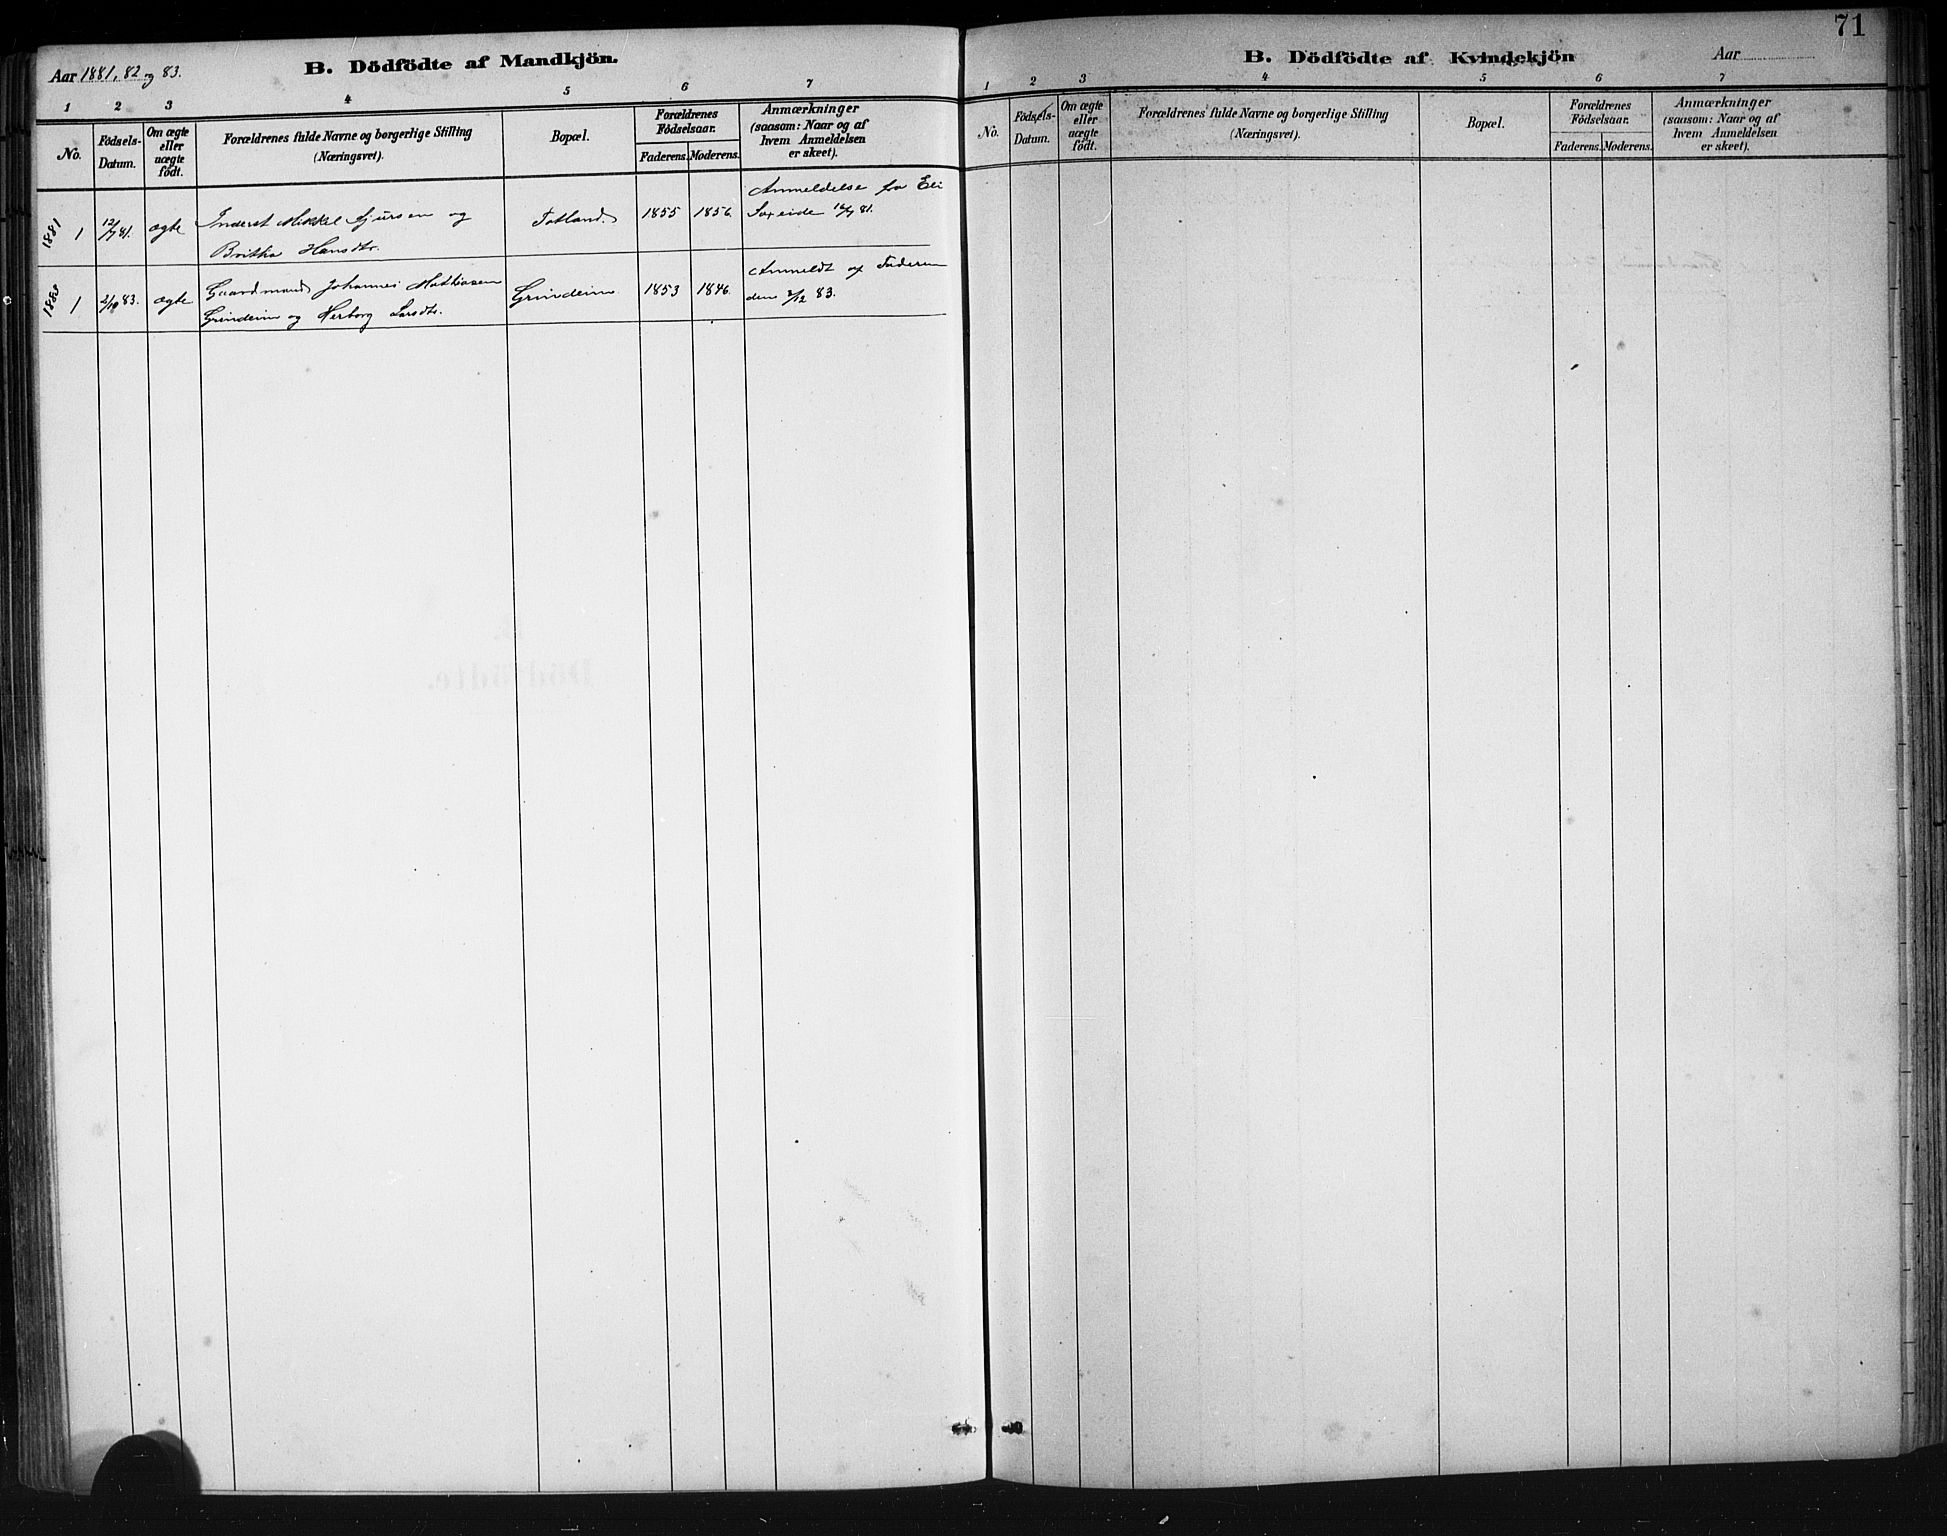 Aar 1881, 82 og 83.
B. Dödfödte af Mandkjön.
1 2 3 4 5 6 7
No.
Födsels-
Datum.
Om ægte
eller
uægte
födt.
Forældrenes fulde Navne og borgerlige Stilling
(Næringsvei).
Bopæl.
Forældrenes
Födselsaar.
Faderens. Moderens.
Anmærkninger
(saasom: Naar og af
hvem Anmeldelsen
er skeet).
1881
1
12/7 81.
ægte
Inderst Mikkel Sjursen og
Britha Hansdtr.
Totland
1855
1856.
Anmeldelse fra Eli
Soxeide 81.
1883
1
83.
ægte
Gaardmand Johannes Mathiasen
Grindeim og Herborg Larsdtr.
Grindeim
1853
1846.
Anmeldt af Faderen
den 2/12 83.
71
B. Dödfödte af Kvindekjön
Aar
1 2 3 4 5 6 7
No.
Födsels-
Datum.
Om ægte
eller
uægte
födt.
Forældrenes fulde Navne og borgerlige Stilling
(Næringsvei).
Bopæl.
Forældrenes
Födselsaar.
Faderens. Moderens.
Anmærkninger
(saasom: Naar og af
hvem Anmeldelsen
er skeet).